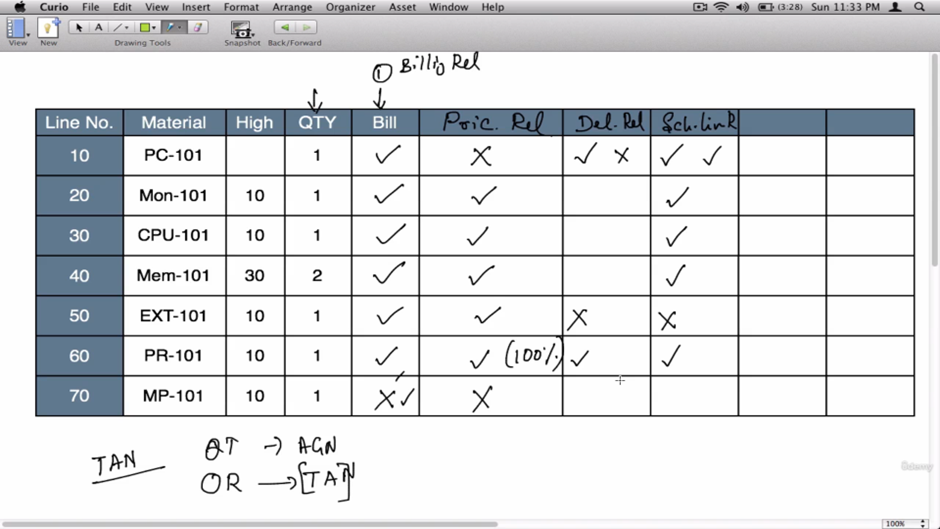 Curio File Edit View Insert Format Arrange Organizer Asset Window Help (3:28) Sun 11:33 PM
View New Drawing Tools Snapshot Back/Forward
① Billig Rel
Line No. Material High QTY Bill Pric. Rel Del. Rel Sch.link
10 PC-101 1 ✓ X ✓ x ✓ ✓
20 Mon-101 10 1 ✓ ✓ ✓
30 CPU-101 10 1 ✓ ✓ ✓
40 Mem-101 30 2 ✓ ✓ ✓
50 EXT-101 10 1 ✓ ✓ X X
60 PR-101 10 1 ✓ ✓ (100%) ✓ ✓
70 MP-101 10 1 X ✓ X
TAN QT → AGN
OR → [TAN]
Udemy
100%